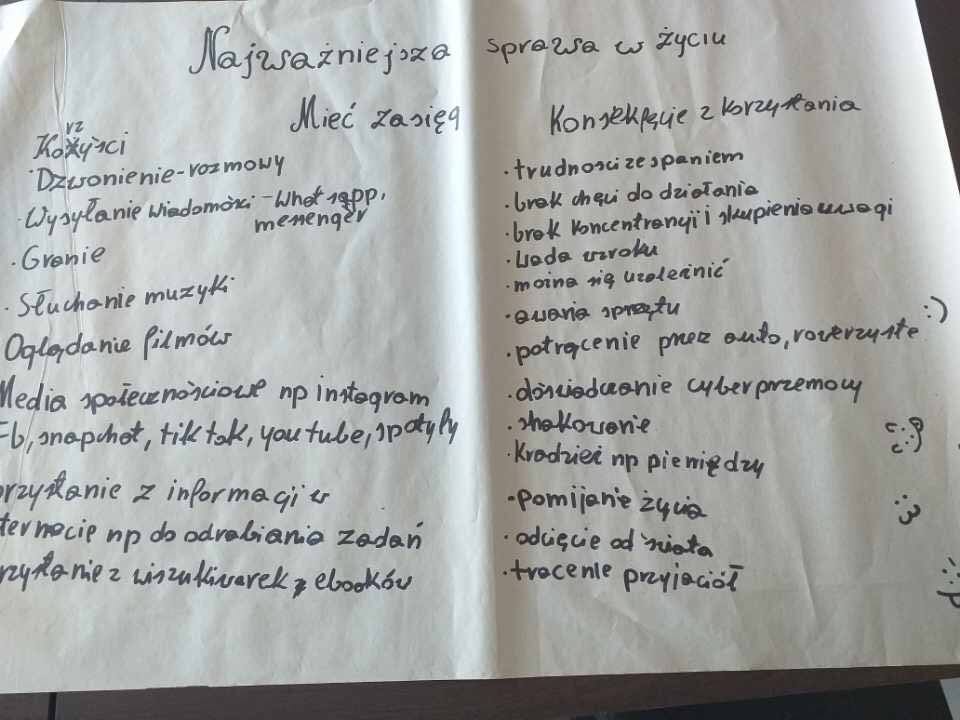 Najważniejsza sprawa w życiu
Mieć zasięg
Kożyści
rz
Dzwonienie-rozmowy
· Wysyłanie wiadomości - Whot sapp,
messenger
· Granie
· Słuchanie muzyki
Oglądanie filmów
Media społecznościowe np instagram
Fb, snapchat, tik tok, you tube, spotyfy
orzystanie z informagi w
ternecie np do odrabiania zadań
rzystanie z wiszukiwarek z ebooków
Konsekfęcje z korzystania
· trudnosci ze spaniem
· brak chęci do działania
· brak koncentrancji i skupienia uwagi
· Wada wzroku
· można się uzależnić
· awaria sprzętu
· potrącenie przez auto, rowerzyste :)
· doświadczanie cyberprzemocy
· shakowanie
· Kradzież np pieniędzy
· pomijanie życia
· odcięcie od świata
· tracenie przyjaciół